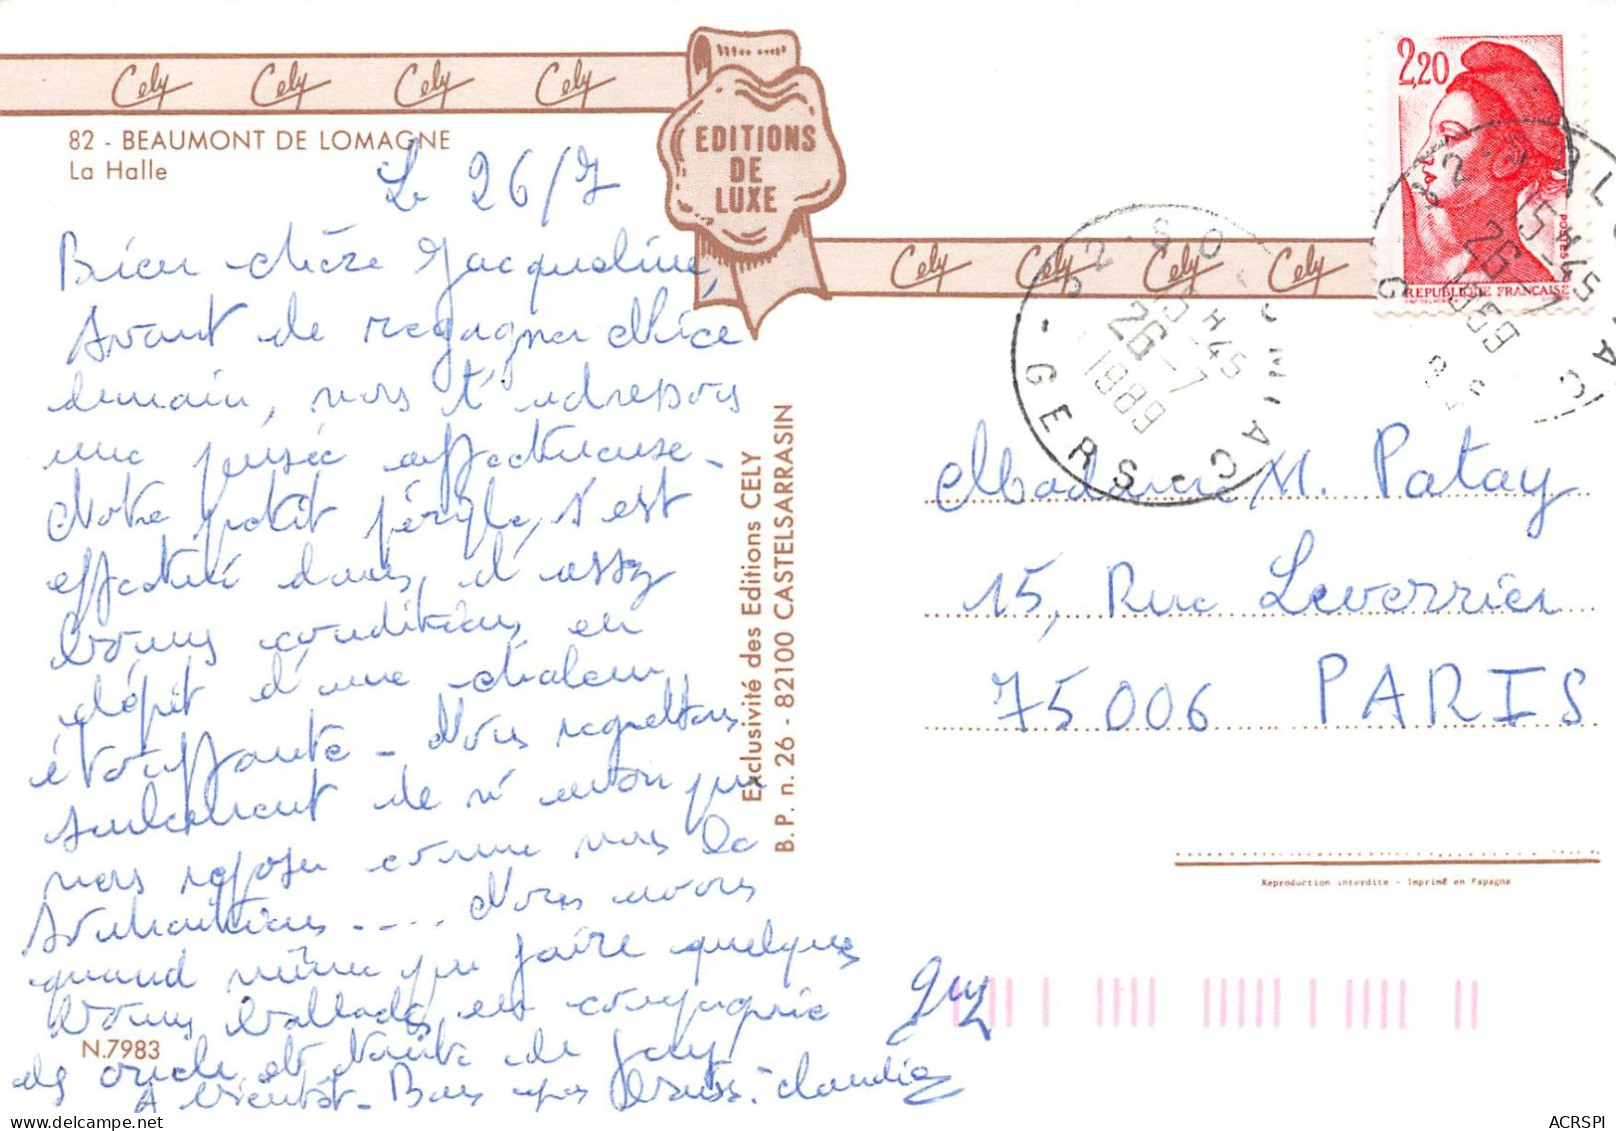 Cely Cely Cely Cely
EDITIONS
DE
LUXE
82 - BEAUMONT DE LOMAGNE
La Halle
Le 26/7
Bien chère Jacqueline,
Avant de regagner Nice
demain, nous t'adressons
une pensée affectueuse.
Notre petit périple s'est
effectué dans d'assez
bonnes conditions en
dépit d'une chaleur
étouffante - Nous regrettons
seulement de n'avoir pu
nous reposer comme nous le
souhaitions.... Nous avons
quand même pu faire quelques
bonnes ballades en compagnie
de oncle et tante de Guy
A bientôt - Bons baisers. Claudie
Guy
N.7983
Exclusivité des Editions CELY
B.P. n. 26 - 82100 CASTELSARRASIN
Cely Cely Cely Cely
2,20
POSTES
REPUBLIQUE FRANÇAISE
15 H 45
26 - 7
1989
GERS
15 H 45
26 - 7
1989
Madame M. Patay
15, Rue Leverrier
75006 PARIS
Reproduction interdite - Imprimé en Espagne
ACRSPI